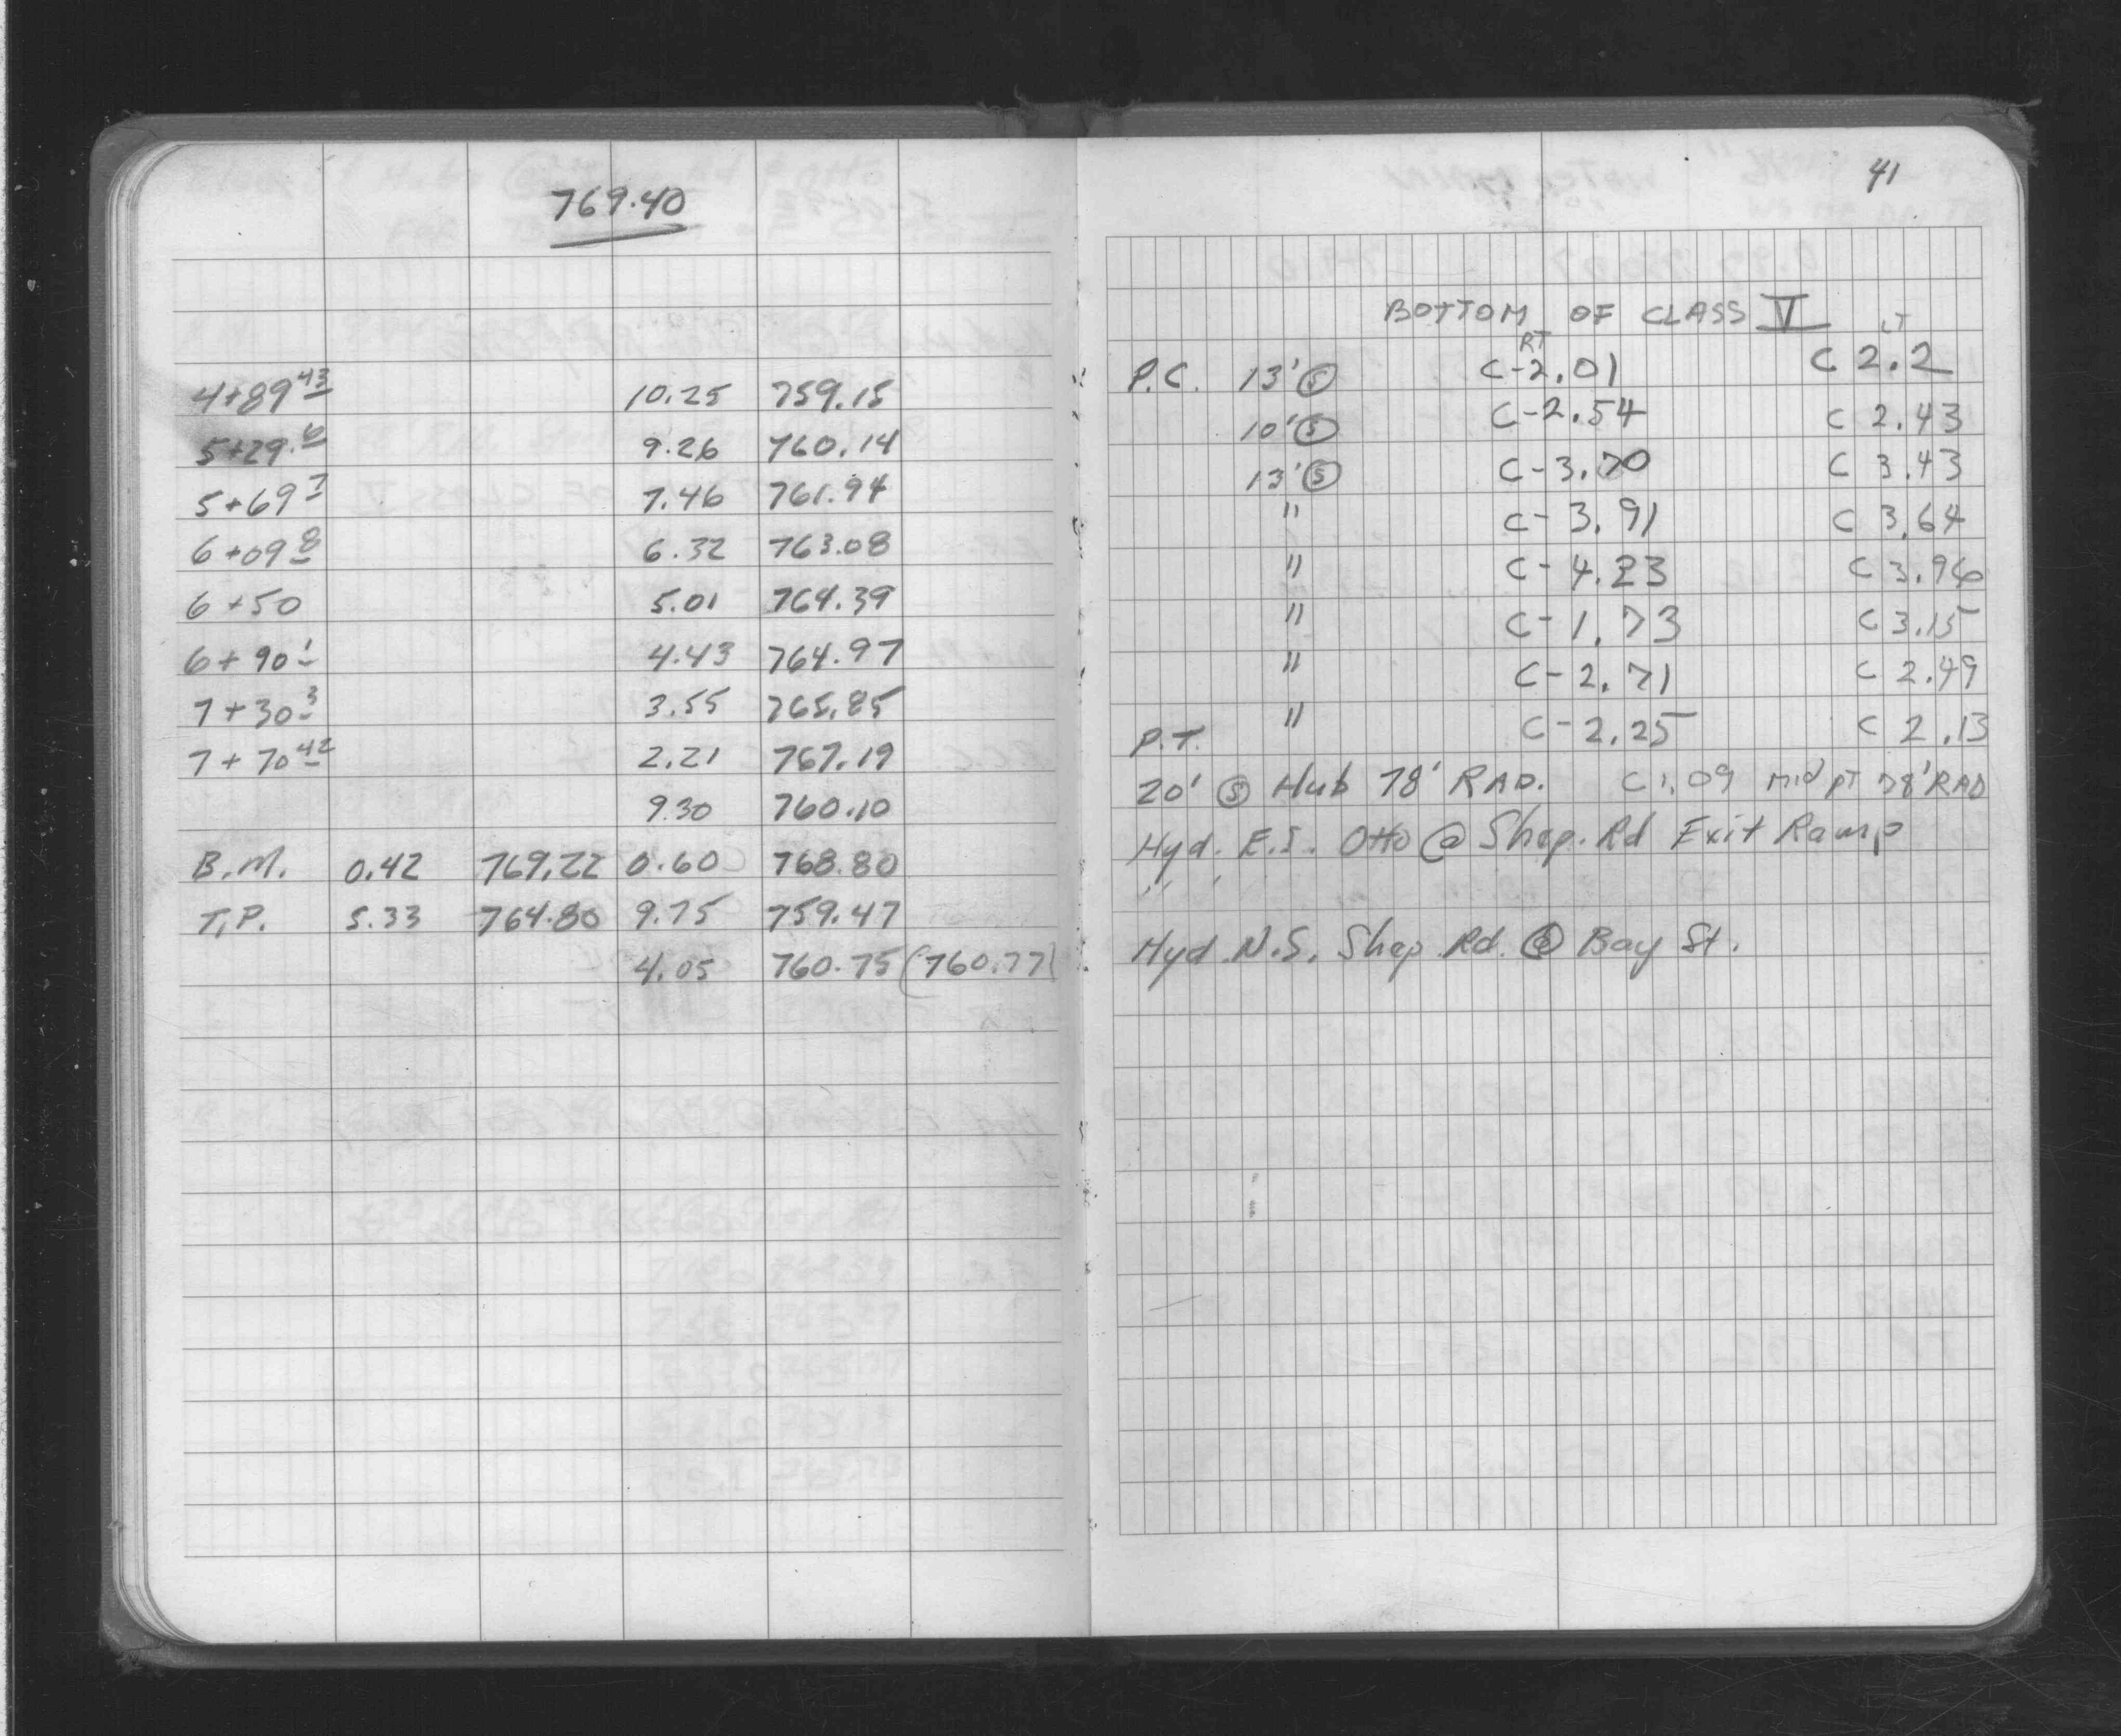 769.40
4+89 43 10.25 759.15
5+29.6 9.26 760.14
5+69 7 7.46 761.94
6+09 8 6.32 763.08
6+50 5.01 764.39
6+90 1 4.43 764.97
7+30 3 3.55 765.85
7+70 42 2.21 767.19
9.30 760.10
B.M. 0.42 769.22 0.60 768.80
T.P. 5.33 764.80 9.75 759.47
4.05 760.75 (760.77)
41
BOTTOM OF CLASS V
RT LT
P.C. 13' Ⓢ C-2.01 C 2.2
10' Ⓢ C-2.54 C 2.43
13' Ⓢ C-3.70 C 3.43
" C-3.91 C 3.64
" C-4.23 C 3.96
" C-1.73 C 3.15
" C-2.71 C 2.49
P.T. " C-2.25 C 2.13
20' Ⓢ Hub 78' RAD. C 1.09 mid pt 78' RAD
Hyd. E.S. Otto @ Shep. Rd Exit Ramp
" "
Hyd N.S. Shep Rd. @ Bay St.